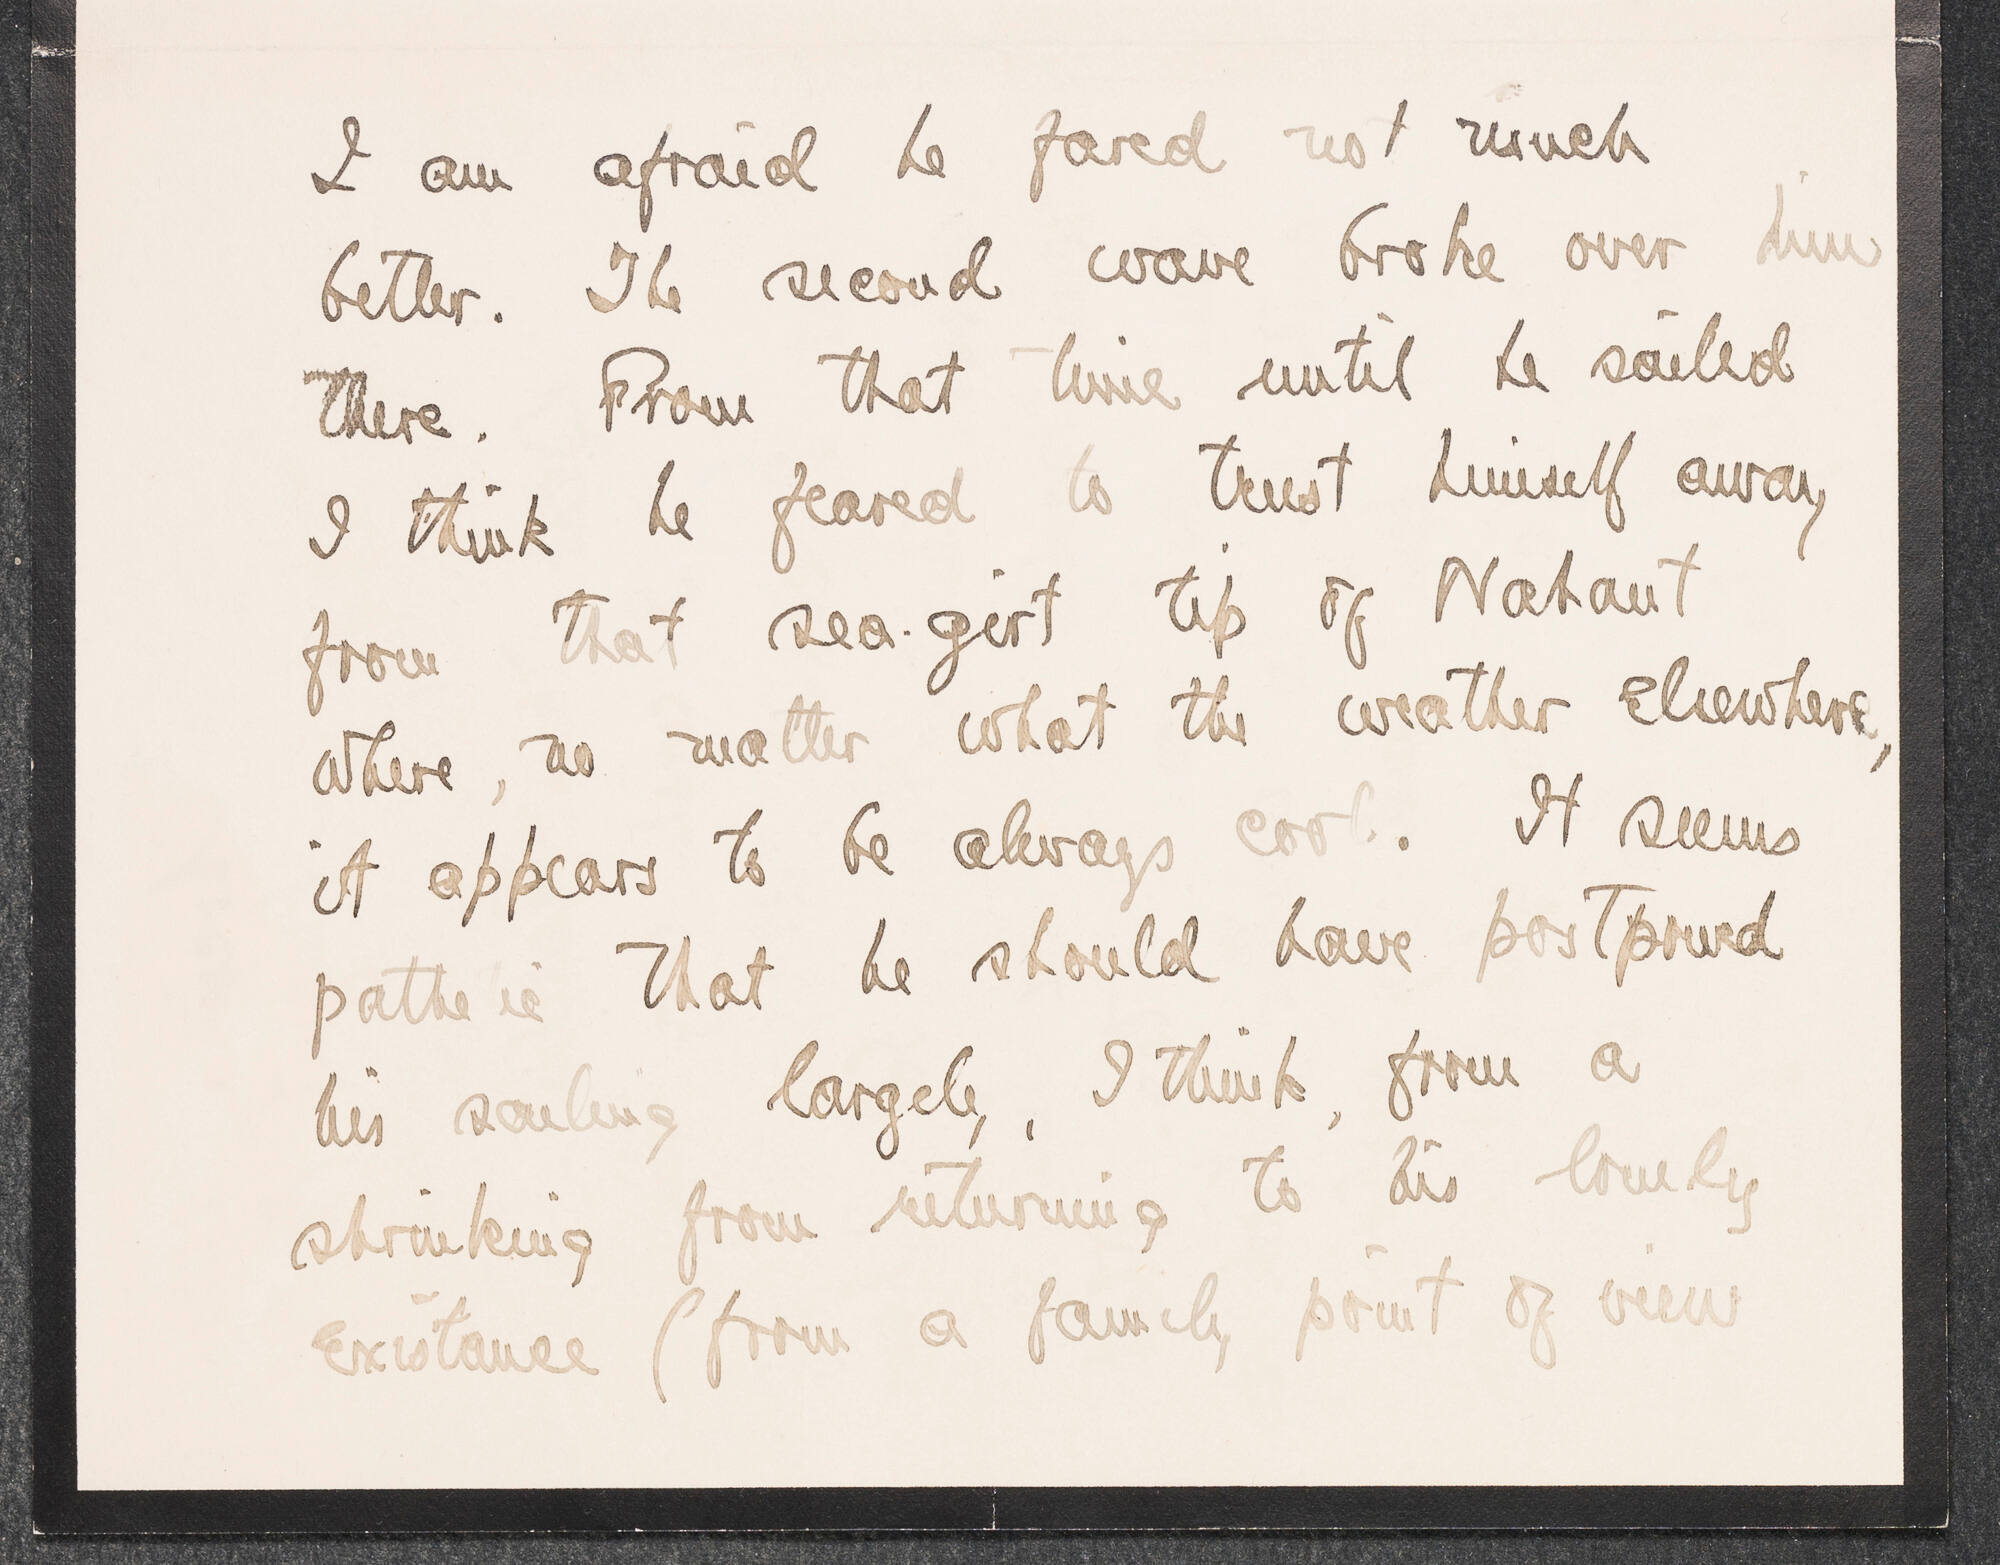 I am afraid he fared not much
better. The second wave broke over him
there. From that time until he sailed
I think he feared to trust himself away
from that sea-girt tip of Nahant
where, no matter what the weather elsewhere,
it appears to be always cool. It seems
pathetic that he should have postponed
his sailing largely, I think, from a
shrinking from returning to his lonely
existance (from a family point of view